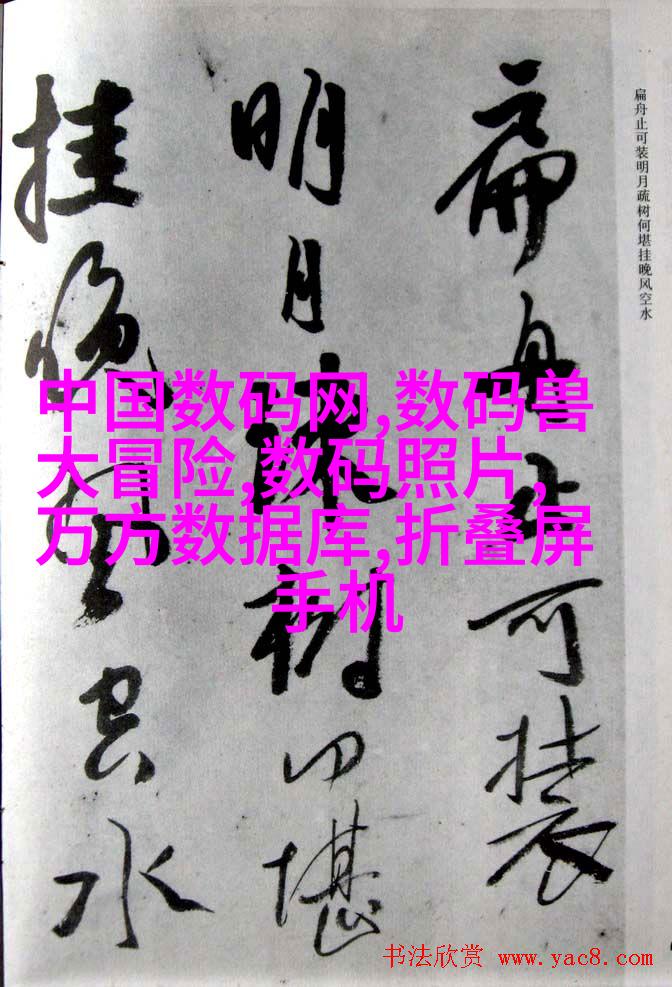 扁舟止可装
明月疏树何堪
挂晚风空水
扁舟止可装明月疏树何堪挂晚风空水
中国数码网,数码兽
大冒险,数码照片,
万方数据库,折叠屏
手机
书法欣赏 www.yac8.com